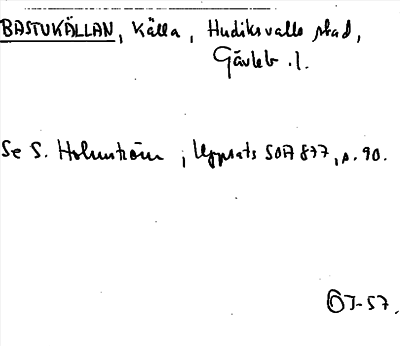 BASTUKÄLLAN, Källa, Hudiksvalls stad,
Gävleb. l.
Se S. Holmström, Uppsats SOA 877, s. 90.
OJ-57.